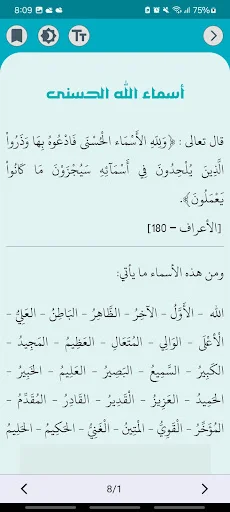 8:09
75%
أسماء الله الحسنى
قال تعالى : ﴿وَلِلَّهِ الأَسْمَاءُ الْحُسْنَى فَادْعُوهُ بِهَا وَذَرُواْ
الَّذِينَ يُلْحِدُونَ فِي أَسْمَآئِهِ سَيُجْزَوْنَ مَا كَانُواْ
يَعْمَلُونَ﴾.
[الأعراف – 180]
ومن هذه الأسماء ما يأتي:
الله - الأَوَّلُ - الآخِرُ - الظَّاهِرُ - البَاطِنُ - العَلِيُّ -
الْأَعْلَى - الْوَالِي - الْمُتَعَالِ - العَظِيمُ - المَجِيدُ -
الكَبِيرُ - السَّمِيعُ - البَصِيرُ - العَلِيمُ - الخَبِيرُ -
الحَمِيدُ - العَزِيزُ - الْقَدِيرُ - القَادِرُ - المُقَدَّمُ -
المُؤَخَّرُ - القَوِيُّ - المَتِينُ - الغَنِيُّ - الحَكِيمُ - الحَلِيمُ
8/1